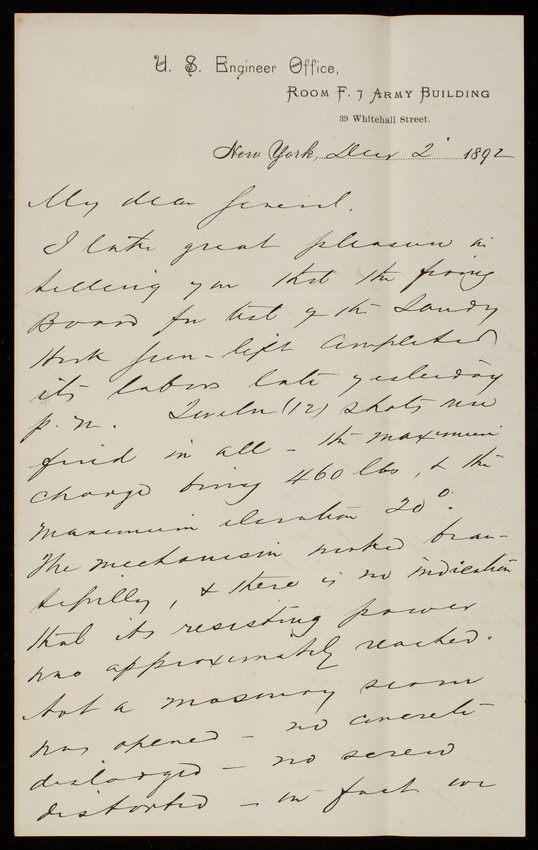 U. S. Engineer Office,
Room F. 7 Army Building
39 Whitehall Street.
New York, Dec 2 1892
My dear General.
I take great pleasure in
telling you that the firing
Board for test of the Sandy
Hook Gun-lift completed
its labors late yesterday
p. m. Twelve (12) shots were
fired in all – the maximum
charge being 460 lbs, & the
maximum elevation 20°.
The mechanism worked beau-
tifully, & there is no indication
that its resisting power
was approximately reached.
Not a masonry seam
was opened – no concrete
dislodged – no screw
distorted – in fact we